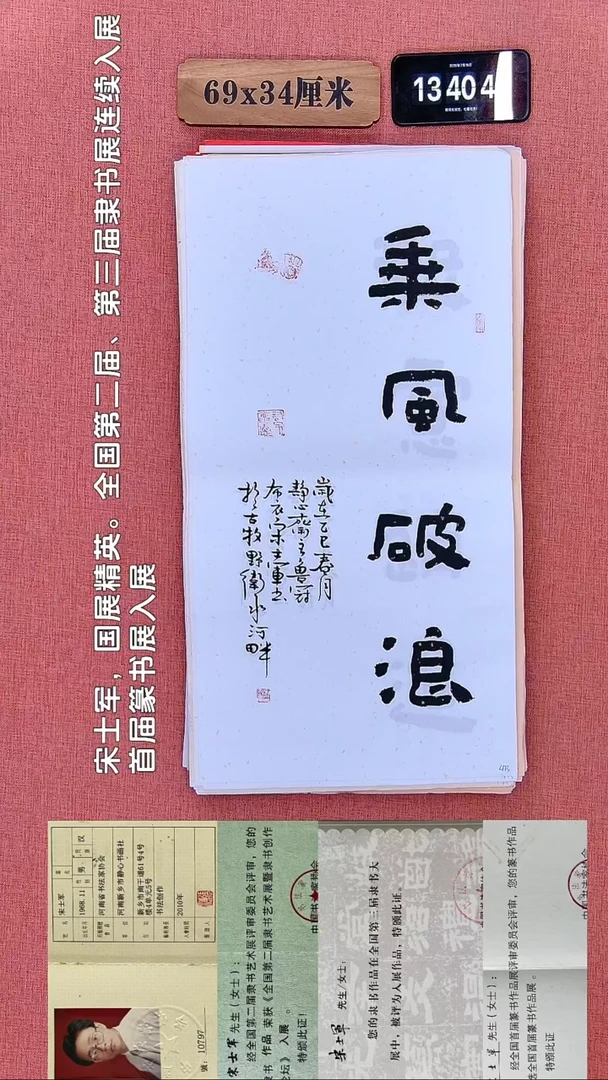 宋士军，国展精英。全国第二届、第三届隶书展连续入展
首届篆书展入展
69x34厘米
13 40 4
乘风破浪
岁在乙巳春月
静心斋主鲁冠
布衣宋士军书
于古牧野卫水河畔
宋士军
1968.11
男
汉
河南省书法家协会
河南新乡市静心书画社
新乡市南干道61号4号
楼4单元5号
书法创作
2010年
號：10797
宋士军 先生(女士)：
经全国第二届隶书艺术展评审委员会评审，您的
隶书 作品 荣获《全国第二届隶书艺术展暨隶书创作
论坛》入展 。
特颁此证！
宋士军 先生/女士：
您的隶书作品在全国第三届隶书大
展中，被评为入展作品，特颁此证。
士军 先生(女士)：
经全国首届篆书作品展评审委员会评审，您的篆书作品
全国首届篆书作品展 。
特颁此证